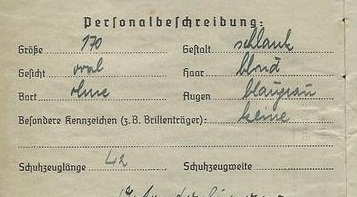 Personalbeschreibung:
Größe 170 Gestalt schlank
Gesicht oval Haar blond
Bart ohne Augen blaugrau
Besondere Kennzeichen (z. B. Brillenträger): keine
Schuhzeuglänge 42 Schuhzeugweite